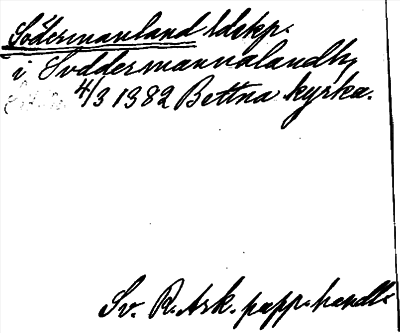 Södermanland ldskp.
i Svddermannalandh,
4/3 1382 Bettna kyrka.
Sv. R. Ark. papp. handl.